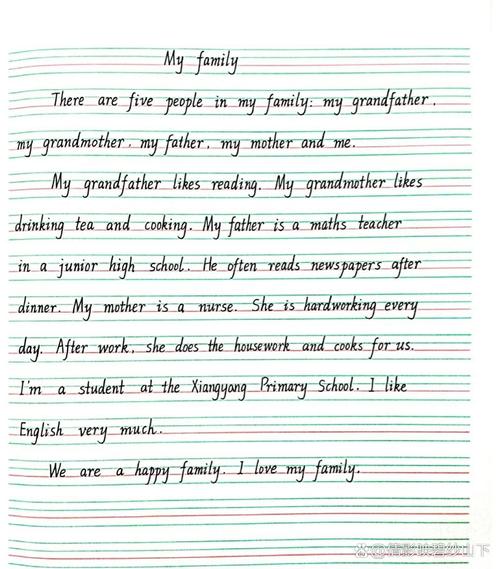 My family
There are five people in my family: my grandfather,
my grandmother, my father, my mother and me.
My grandfather likes reading. My grandmother likes
drinking tea and cooking. My father is a maths teacher
in a junior high school. He often reads newspapers after
dinner. My mother is a nurse. She is hardworking every
day. After work, she does the housework and cooks for us.
I'm a student at the Xiangyang Primary School. I like
English very much.
We are a happy family. I love my family.